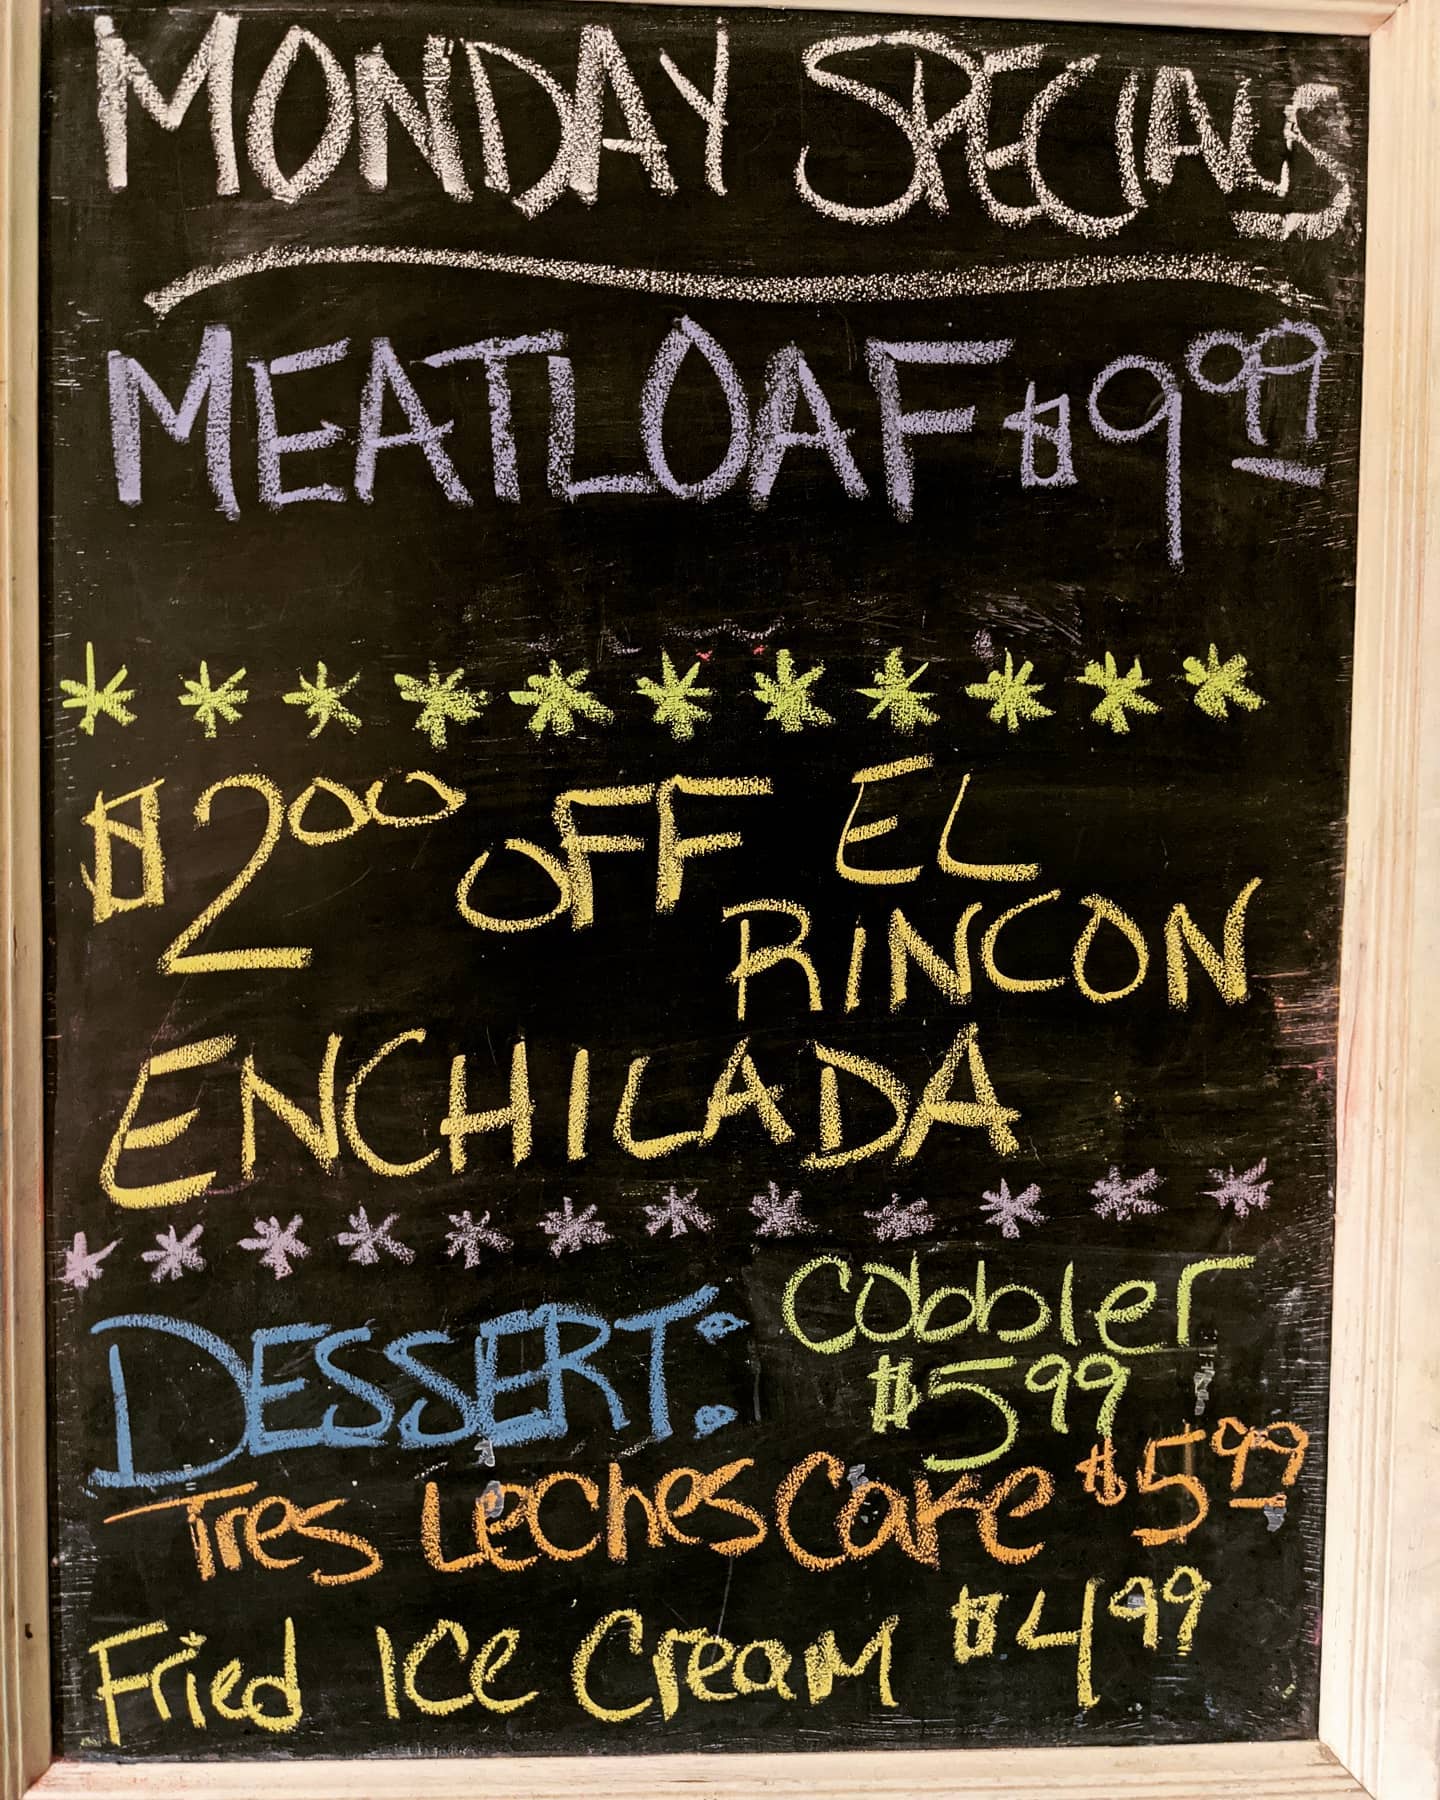 MONDAY SPECIALS
MEATLOAF $9.99
* * * * * * * * * * *
$2.00 OFF EL
RINCON
ENCHILADA
* * * * * * * * * * * *
DESSERT: Cobbler
$5.99
Tres Leches Cake $5.99
Fried Ice Cream $4.99